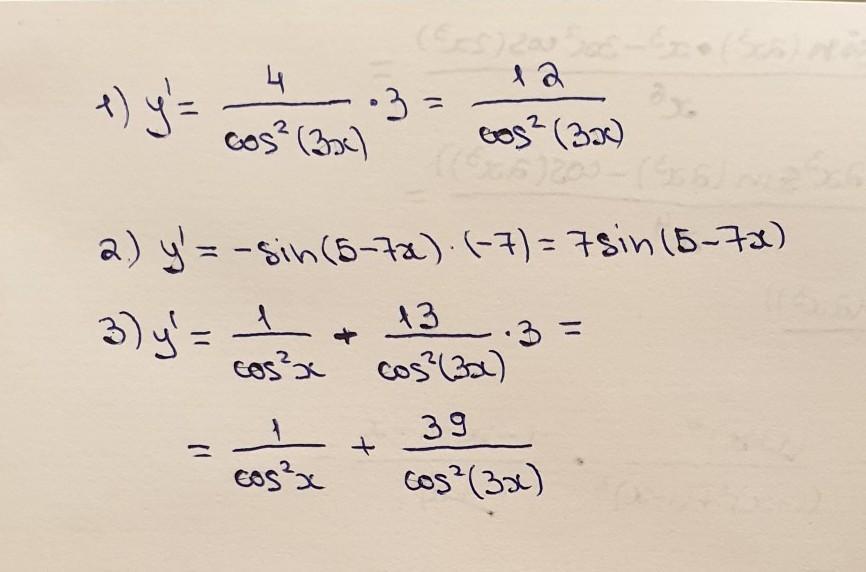 1) y' = 4/cos²(3x) · 3 = 12/cos²(3x)
2) y' = -sin(5-7x) · (-7) = 7sin(5-7x)
3) y' = 1/cos²x + 13/cos²(3x) · 3 =
= 1/cos²x + 39/cos²(3x)